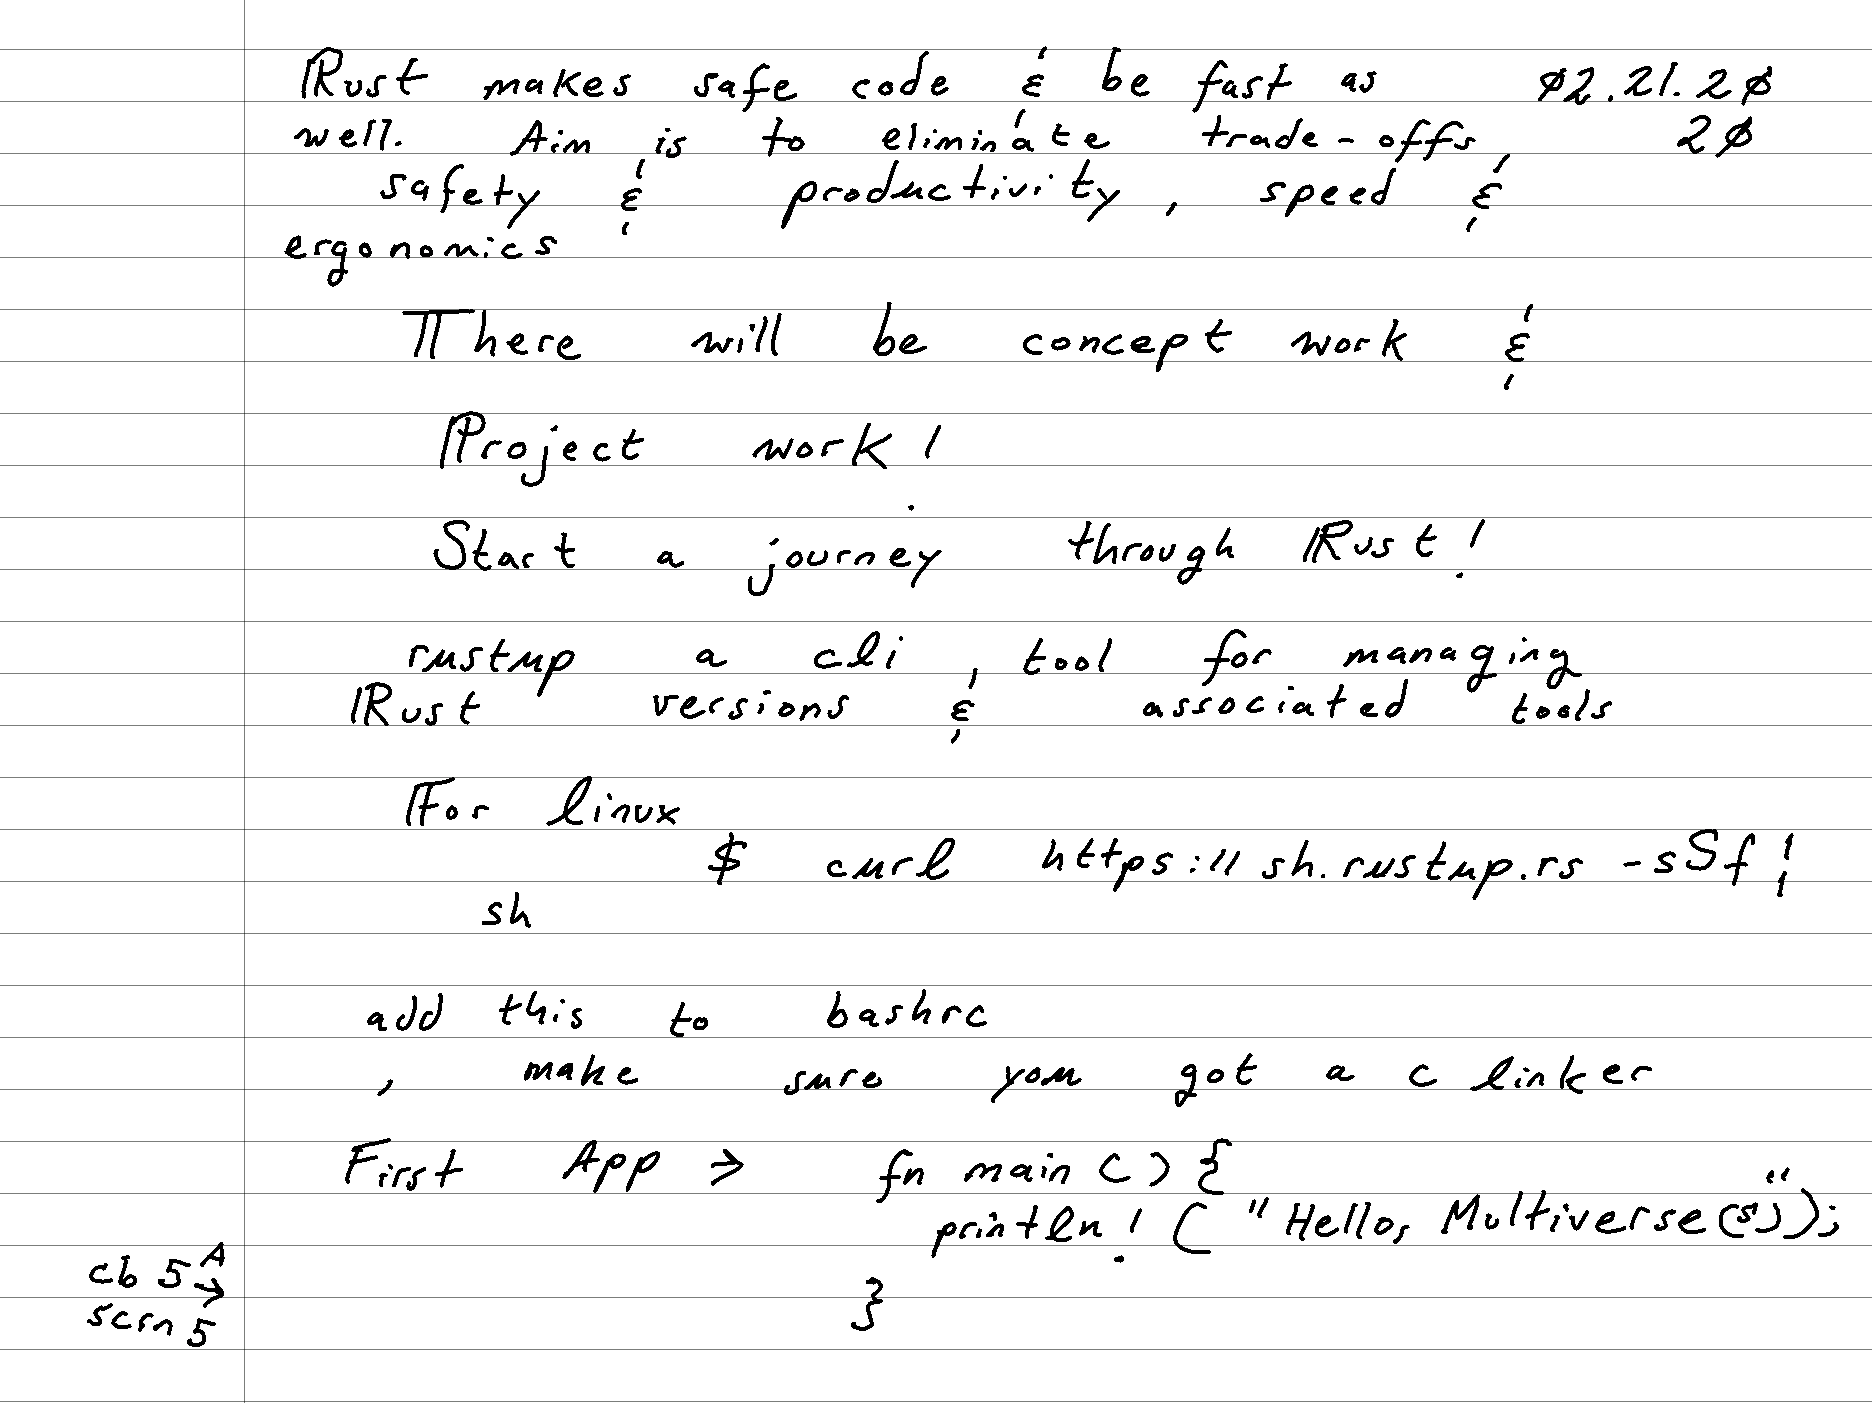 Rust makes safe code & be fast as 02.21.20
well. Aim is to eliminate trade-offs, 20
safety & productivity, speed &
ergonomics
There will be concept work &
Project work!
Start a journey through Rust!
rustup a cli, tool for managing
Rust versions & associated tools
For linux
$ curl https://sh.rustup.rs -sSf |
sh
add this to bashrc
, make sure you got a c linker
First App → fn main () {
println! ("Hello, Multiverse(s)");
cb 5A →
}
scrn 5